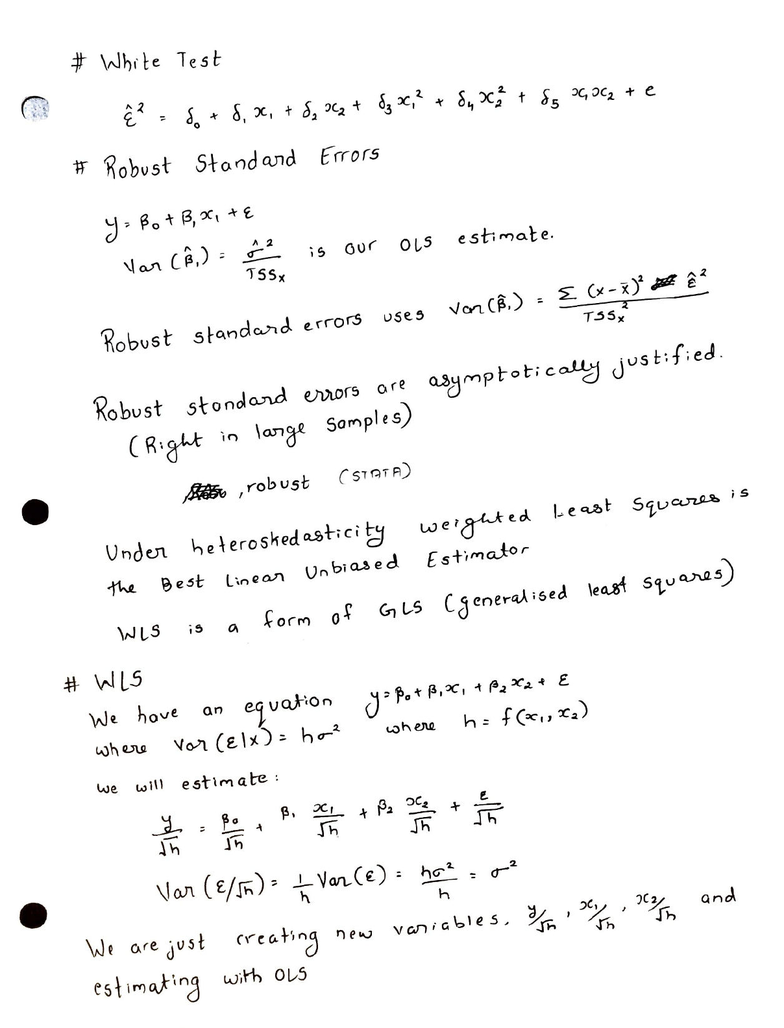 # White Test
ε̂² = δ₀ + δ₁x₁ + δ₂x₂ + δ₃x₁² + δ₄x₂² + δ₅ x₁x₂ + e
# Robust Standard Errors
y = β₀ + β₁x₁ + ε
Var (β̂₁) = σ̂²/TSSₓ is our OLS estimate.
Robust standard errors uses Var(β̂₁) = Σ (x-x̄)² ε̂² / TSSₓ²
Robust standard errors are asymptotically justified.
(Right in large samples)
, robust (STATA)
Under heteroskedasticity weighted Least Squares is
the Best Linear Unbiased Estimator
WLS is a form of GLS (generalised least squares)
# WLS
We have an equation y = β₀ + β₁x₁ + β₂x₂ + ε
where Var (ε|x) = hσ² where h = f(x₁, x₂)
we will estimate :
y/√h = β₀/√h + β₁ x₁/√h + β₂ x₂/√h + ε/√h
Var (ε/√h) = 1/h Var(ε) = hσ²/h = σ²
We are just creating new variables, y/√h, x₁/√h, x₂/√h and
estimating with OLS